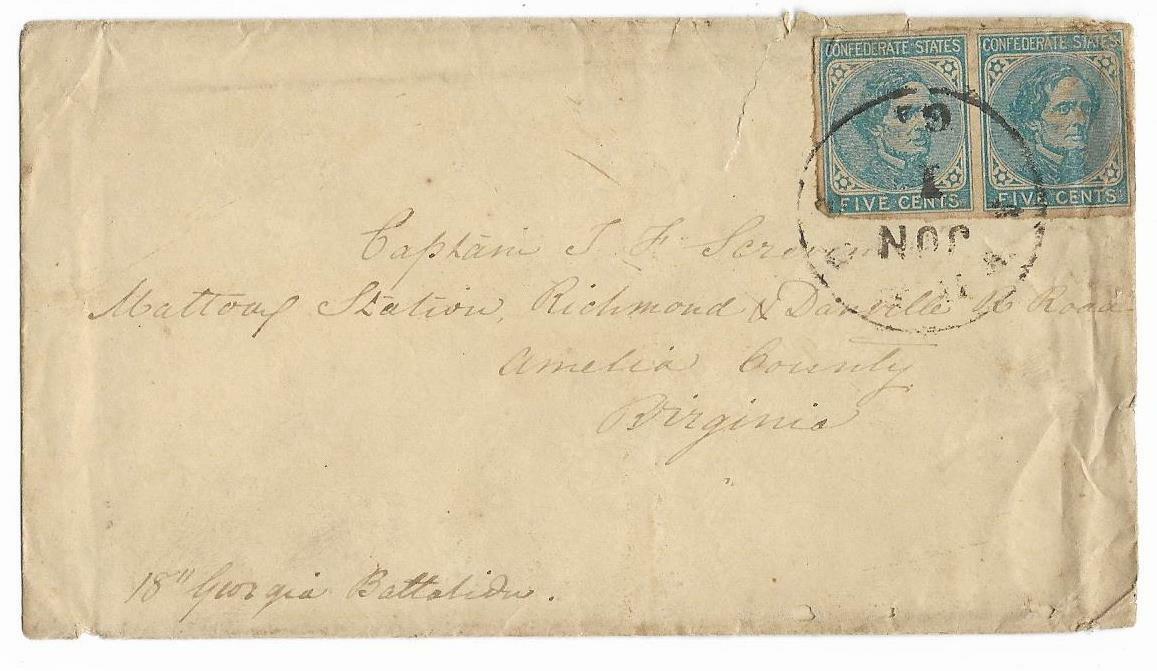 CONFEDERATE STATES CONFEDERATE STATES
FIVE CENTS FIVE CENTS
JUN
Captain J. F. Screven
Mattoax Station, Richmond & Danville R Road
Amelia County
Virginia
18" Georgia Battalion.